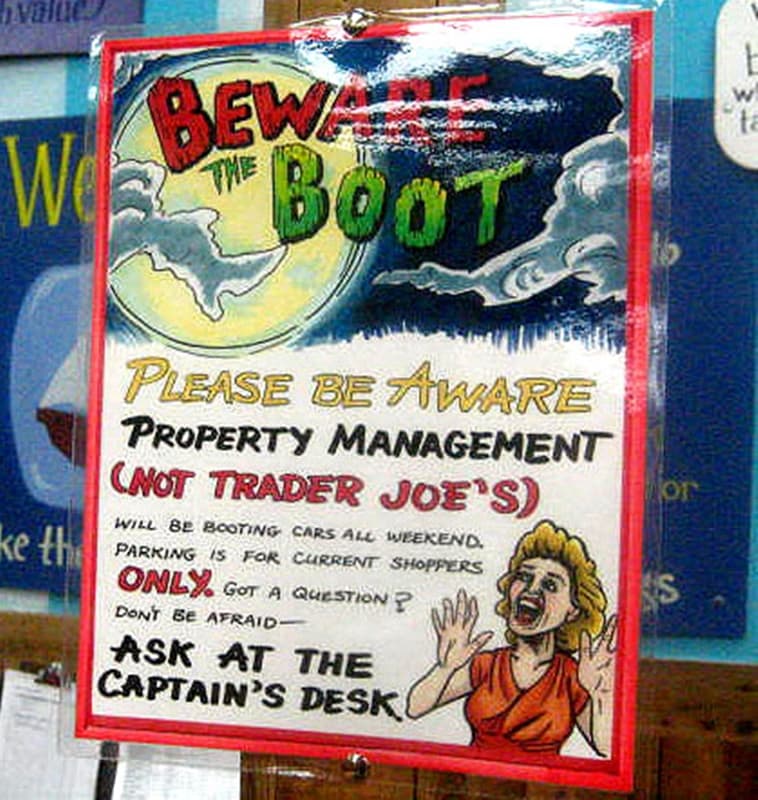 h value?
We
BEWARE
THE BOOT
PLEASE BE AWARE
PROPERTY MANAGEMENT
(NOT TRADER JOE'S)
WILL BE BOOTING CARS ALL WEEKEND.
PARKING IS FOR CURRENT SHOPPERS
ONLY. GOT A QUESTION?
DON'T BE AFRAID—
ASK AT THE
CAPTAIN'S DESK.
or